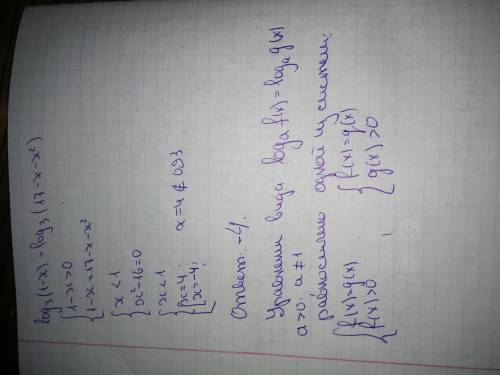 log₃(1-x) = log₃(17-x-x²)
{ 1-x>0
{ 1-x=17-x-x²
{ x<1
{ x²-16=0
{ x<1
{ [ x=4
{ [ x=-4; x=4 ∉ ОДЗ
Ответ: -4.
Уравнения вида logₐ f(x) = logₐ g(x)
a>0. a≠1
равносильно одной из систем:
{ f(x)=g(x) { f(x)=g(x)
{ f(x)>0 { g(x)>0